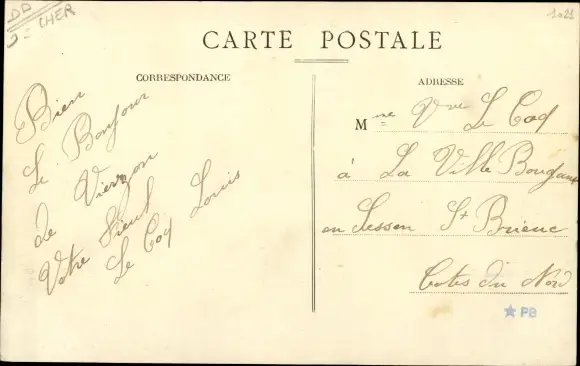 DD
CHER
1021
CARTE POSTALE
CORRESPONDANCE
Bien
Le Bonjour
de Vierzon
Votre
Le Coq Louis
ADRESSE
Mme Vve Le Coq
à La Ville
en Sesson St Brieuc
Cotes du Nord
PB